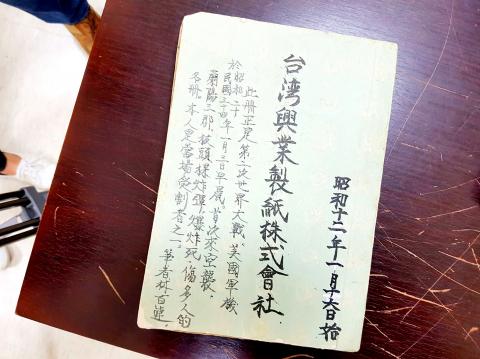 昭和十二年一月十六日始
台湾興業製紙株式會社
此册正是第二次世界大戰、美國軍機
於昭和二十
民國三十四年一月三日早晨、首次來空襲、
蘭陽三郡、被頭炸彈、爆炸死傷多人的
名册。本人是當場受割者之一。筆者林百